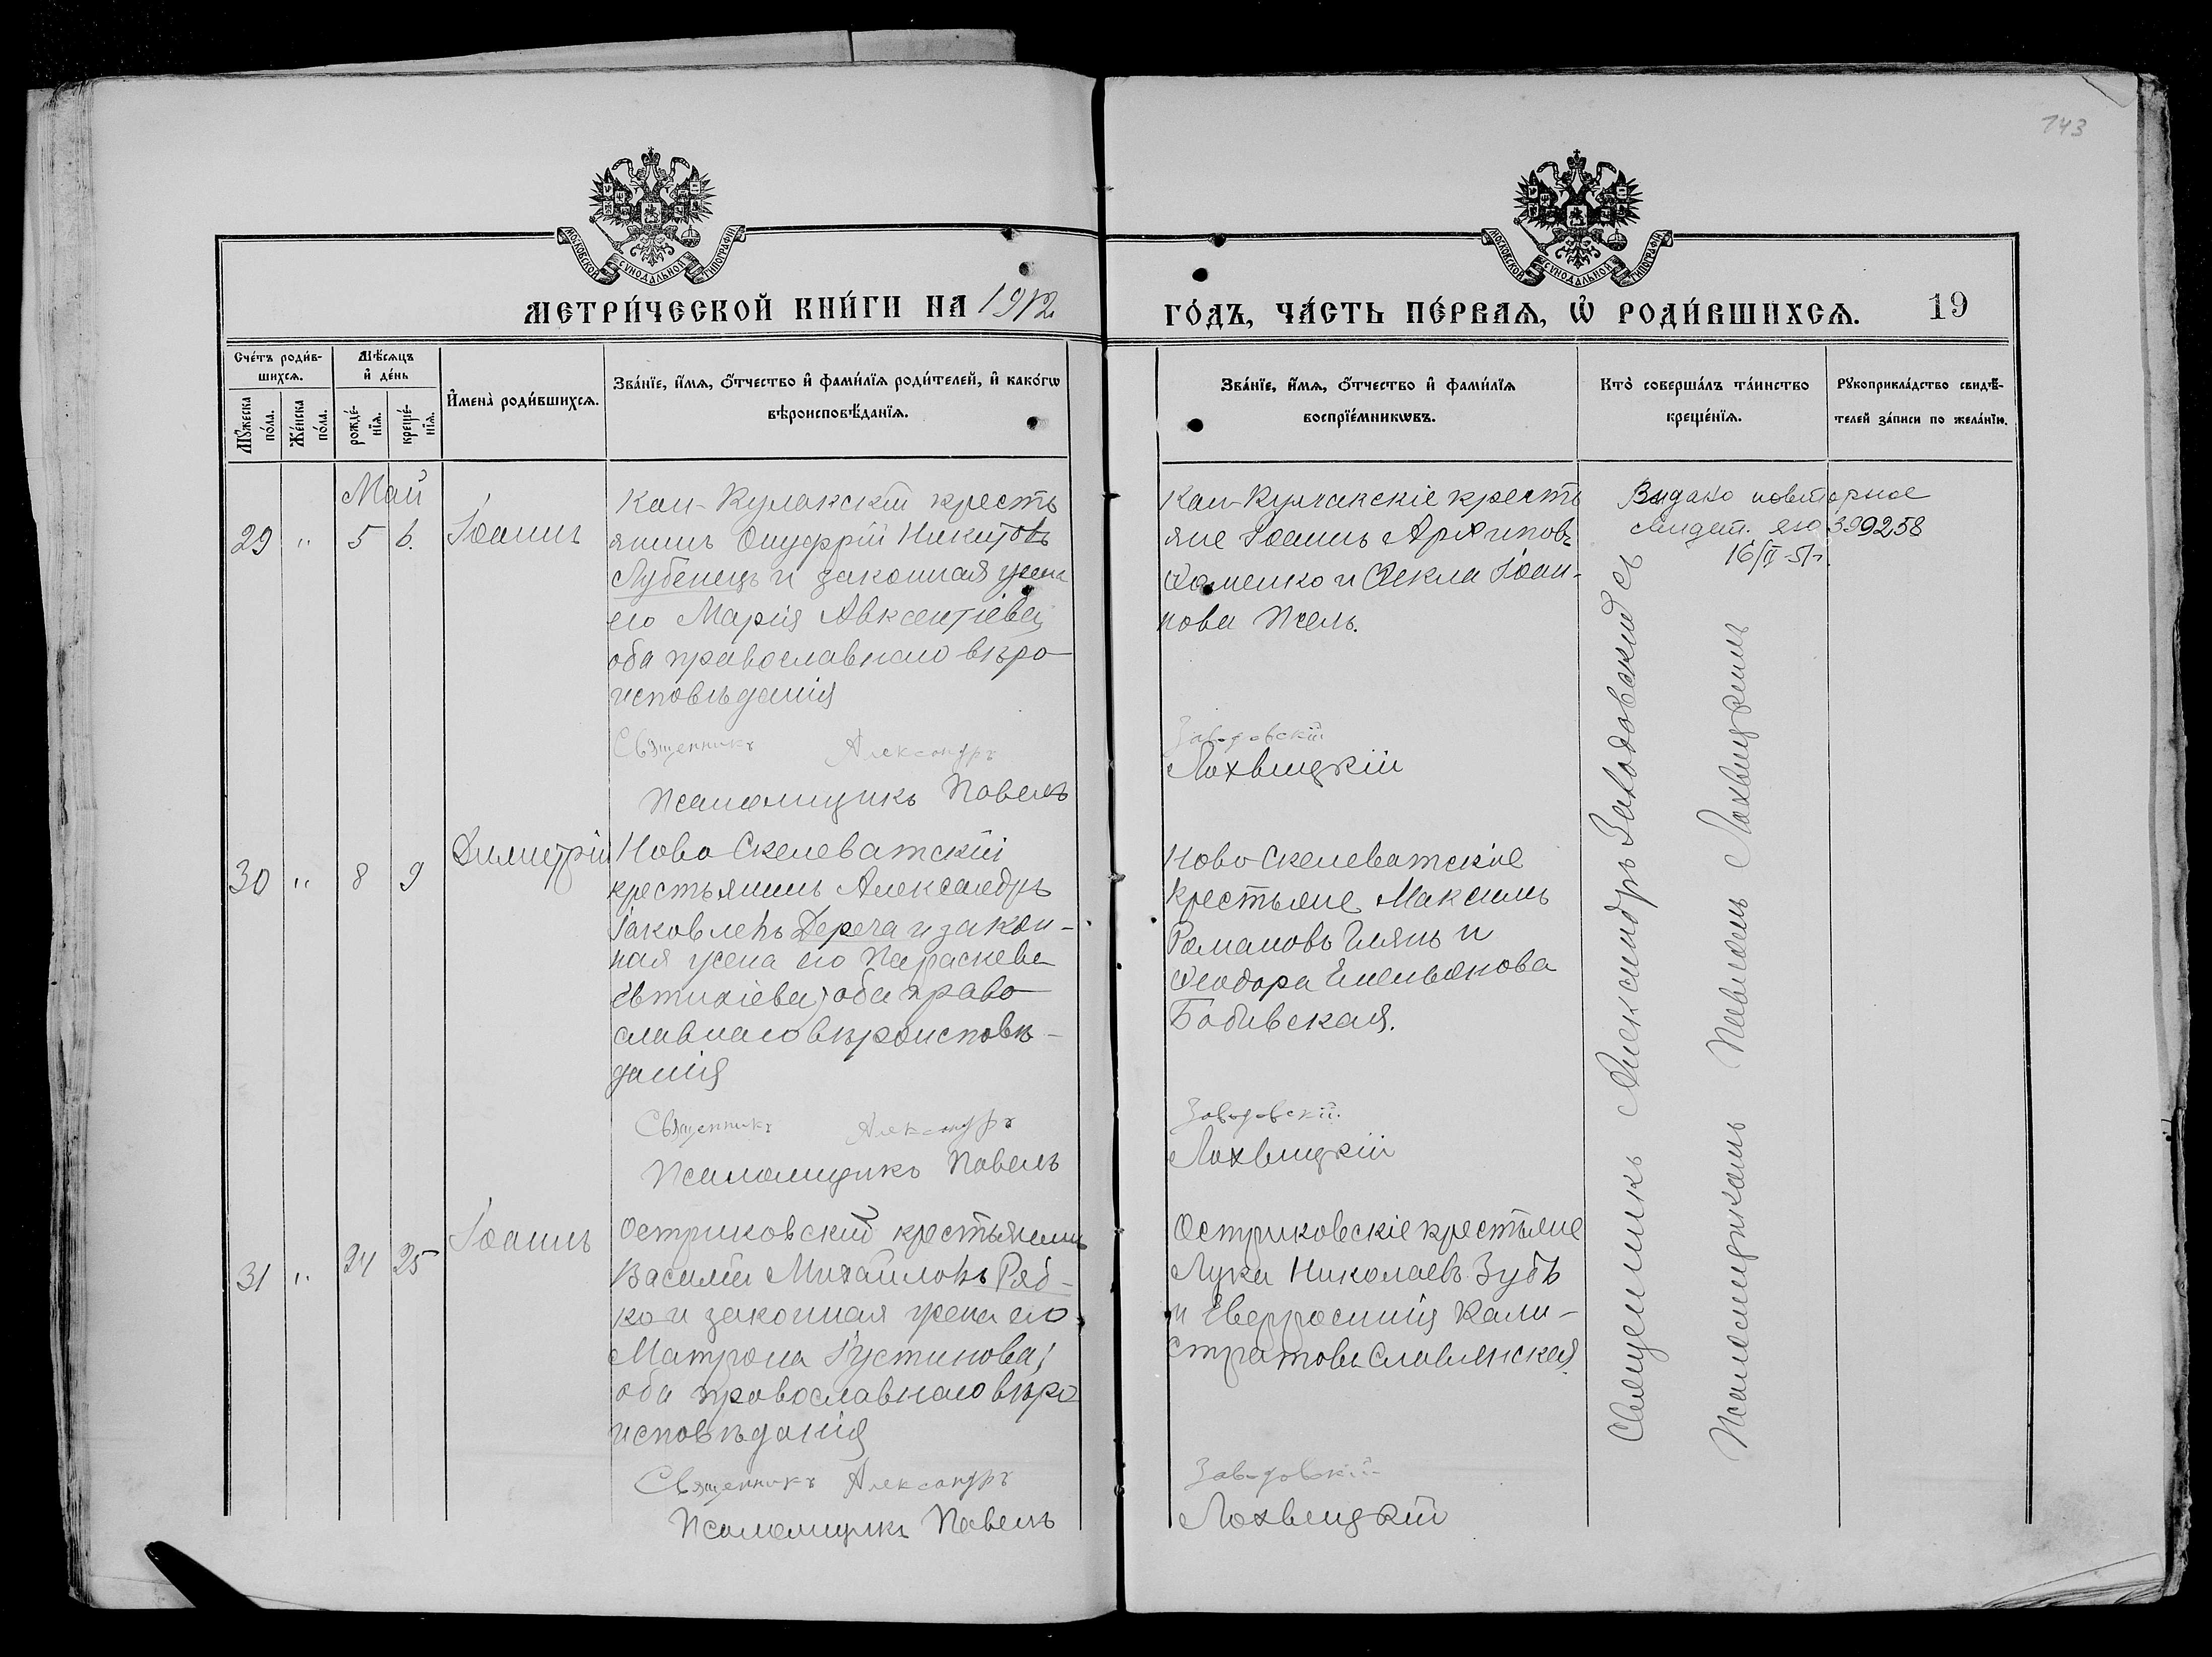 143
МОСКОВСКОЙ СУНОДАЛЬНОЙ ТИПОГРАФІИ
МОСКОВСКОЙ СУНОДАЛЬНОЙ ТИПОГРАФІИ
МЕТРИ́ЧЕСКОЙ КНИ́ГИ НА 1912
ГО́ДЪ, ЧА́СТЬ ПЕ́РВАѦ, Ѡ҆ РОДИ́ВШИХСѦ. 19
Сче́тъ роди́в-
шихсѧ.
Мѣ́сѧцъ
и҆ де́нь
Мꙋ́жеска
по́ла.
Же́нска
по́ла.
рожде́-
нїѧ.
креще́-
нїѧ.
И҆мена̀ роди́вшихсѧ.
Зва́нїе, и҆́мѧ, ѻ҆́тчество и҆ фами́лїѧ роди́телей, и҆ како́гѡ
вѣроисповѣ́данїѧ.
Зва́нїе, и҆́мѧ, ѻ҆́тчество и҆ фами́лїѧ
воспрїе́мникѡвъ.
Кто̀ соверша́лъ та́инство
креще́нїѧ.
Рꙋкоприкла́дство свидѣ́-
телей за́писи по жела́нїю.
Май
29 " 5 6. Іоаннъ
Кан-Кулакскій кресть
янинъ Онуфрій Никитовъ
Лубенецъ и законная жена
его Марія Авксентіева,
оба православнаго вѣро-
исповѣданія
Священникъ Александръ
Псаломщикъ Павелъ
Кан-Кулакскіе кресть
яне Іоаннъ Архиповъ
Хоменко и Ѳекла Іоан-
нова Псель.
Заводовскій
Лохвицкій
Видано повторное
свидет. 399258
16/II-51г.
30 " 8 9 Димитрій
Ново Скелеватскій
крестьянинъ Александръ
Іаковлевъ Дереча и закон-
ная жена его Параскева
Евтихіева, оба право-
славнаго вѣроисповѣ-
данія
Священникъ Александръ
Псаломщикъ Павелъ
Ново Скелеватскіе
крестьяне Максимъ
Романовъ и
Ѳеодора Емельянова
Бабивская.
Заводовскій
Лохвицкій
31 " 24 25 Іоаннъ
Остриковскій крестьянинъ
Василій Михайловъ Ряб-
ко и законная жена его
Матрона Іустинова,
оба православнаго вѣро
исповѣданія
Священникъ Александръ
Псаломщикъ Павелъ
Остриковскіе крестьяне
Лука Николаевъ Зубъ
и Евфросинія Кали-
стратова Славянская
Заводовскій
Лохвицкій
Священникъ Александръ Заводовскій съ
Псаломщикомъ Павломъ Лохвицкимъ